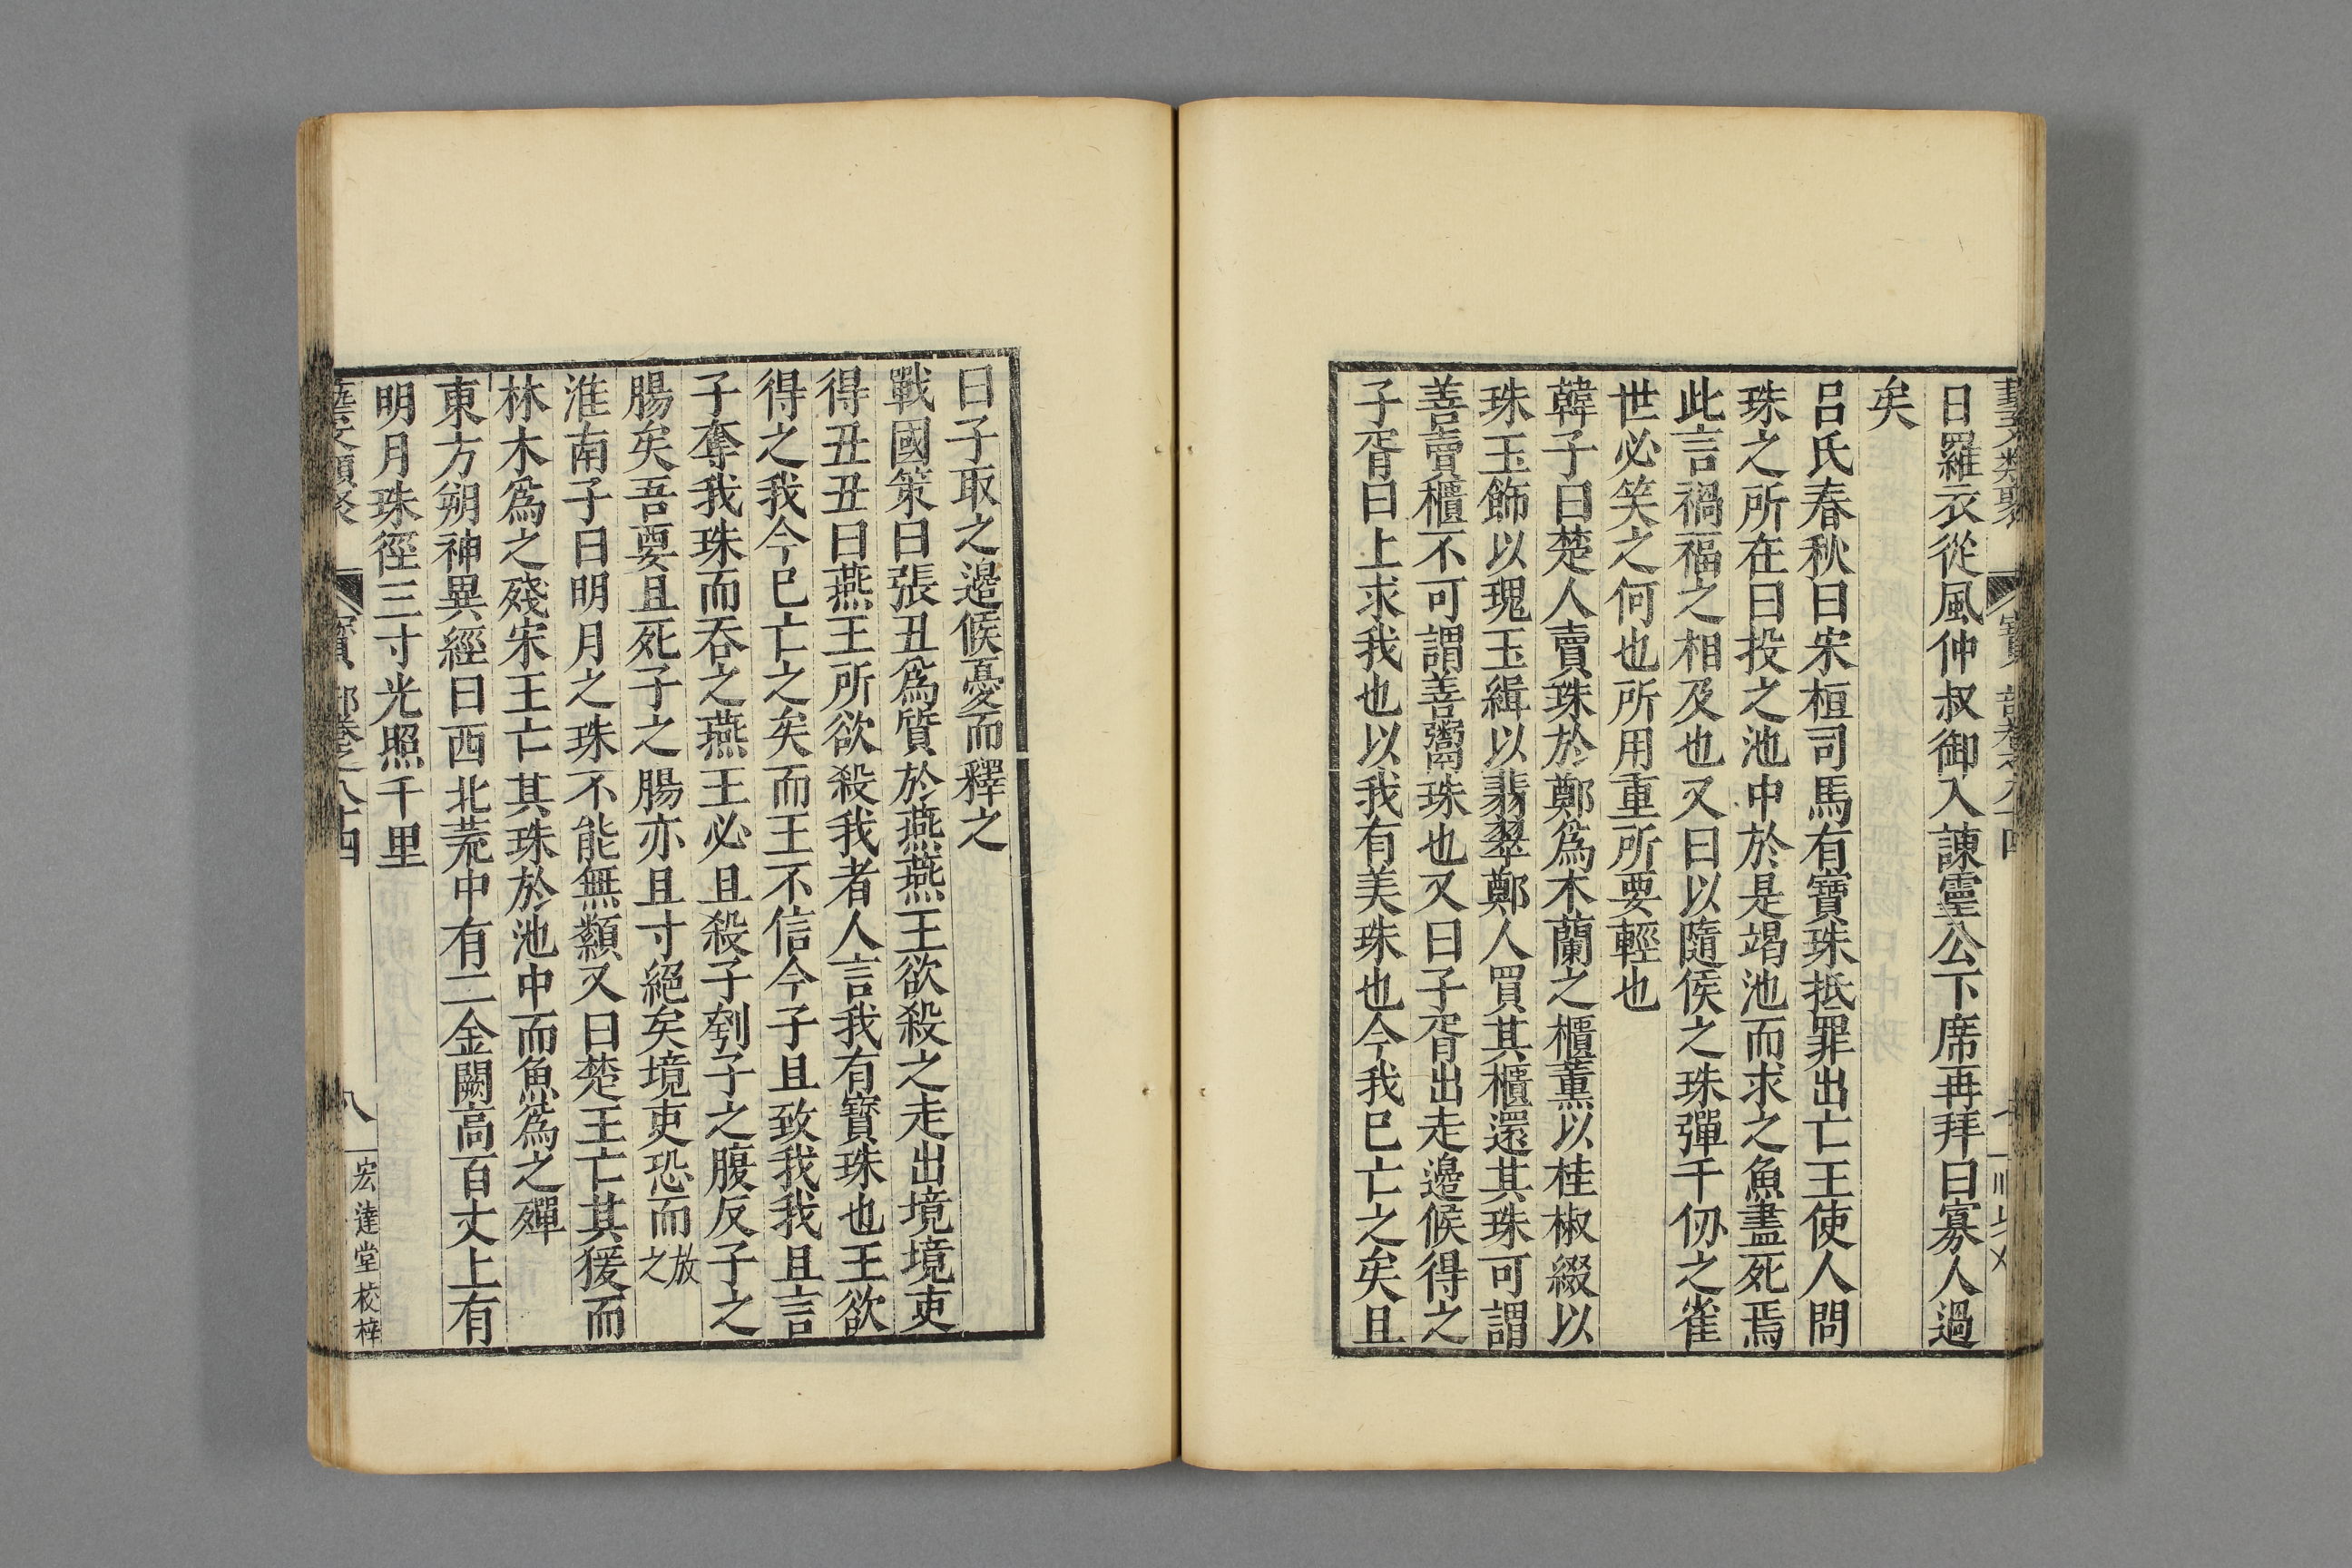 日羅衣從風仲叔御入諫靈公下席再拜曰寡人過
矣
呂氏春秋曰宋桓司馬有寶珠抵罪出亡王使人問
珠之所在曰投之池中於是竭池而求之魚盡死焉
此言禍福之相及也又曰以隨侯之珠彈千仞之雀
世必笑之何也所用重所要輕也
韓子曰楚人賣珠於鄭爲木蘭之櫃薰以桂椒綴以
珠玉飾以瑰玉緝以翡翠鄭人買其櫃還其珠可謂
善賣櫃不可謂善鬻珠也又曰子胥出走邊候得之
子胥曰上求我也以我有美珠也今我已亡之矣且
曰子取之邊候憂而釋之
戰國策曰張丑爲質於燕燕王欲殺之走出境境吏
得丑丑曰燕王所欲殺我者人言我有寶珠也王欲
得之我今已亡之矣而王不信今子且致我我且言
子奪我珠而吞之燕王必且殺子刳子之腹反子之
腸矣吾要且死子之腸亦且寸絕矣境吏恐而放之
淮南子曰明月之珠不能無纇又曰楚王亡其猨而
林木爲之殘宋王亡其珠於池中而魚爲之殫
東方朔神異經曰西北荒中有二金闕高百丈上有
明月珠徑三寸光照千里
藝文類聚 寶部卷之八十四 八 宏達堂校梓